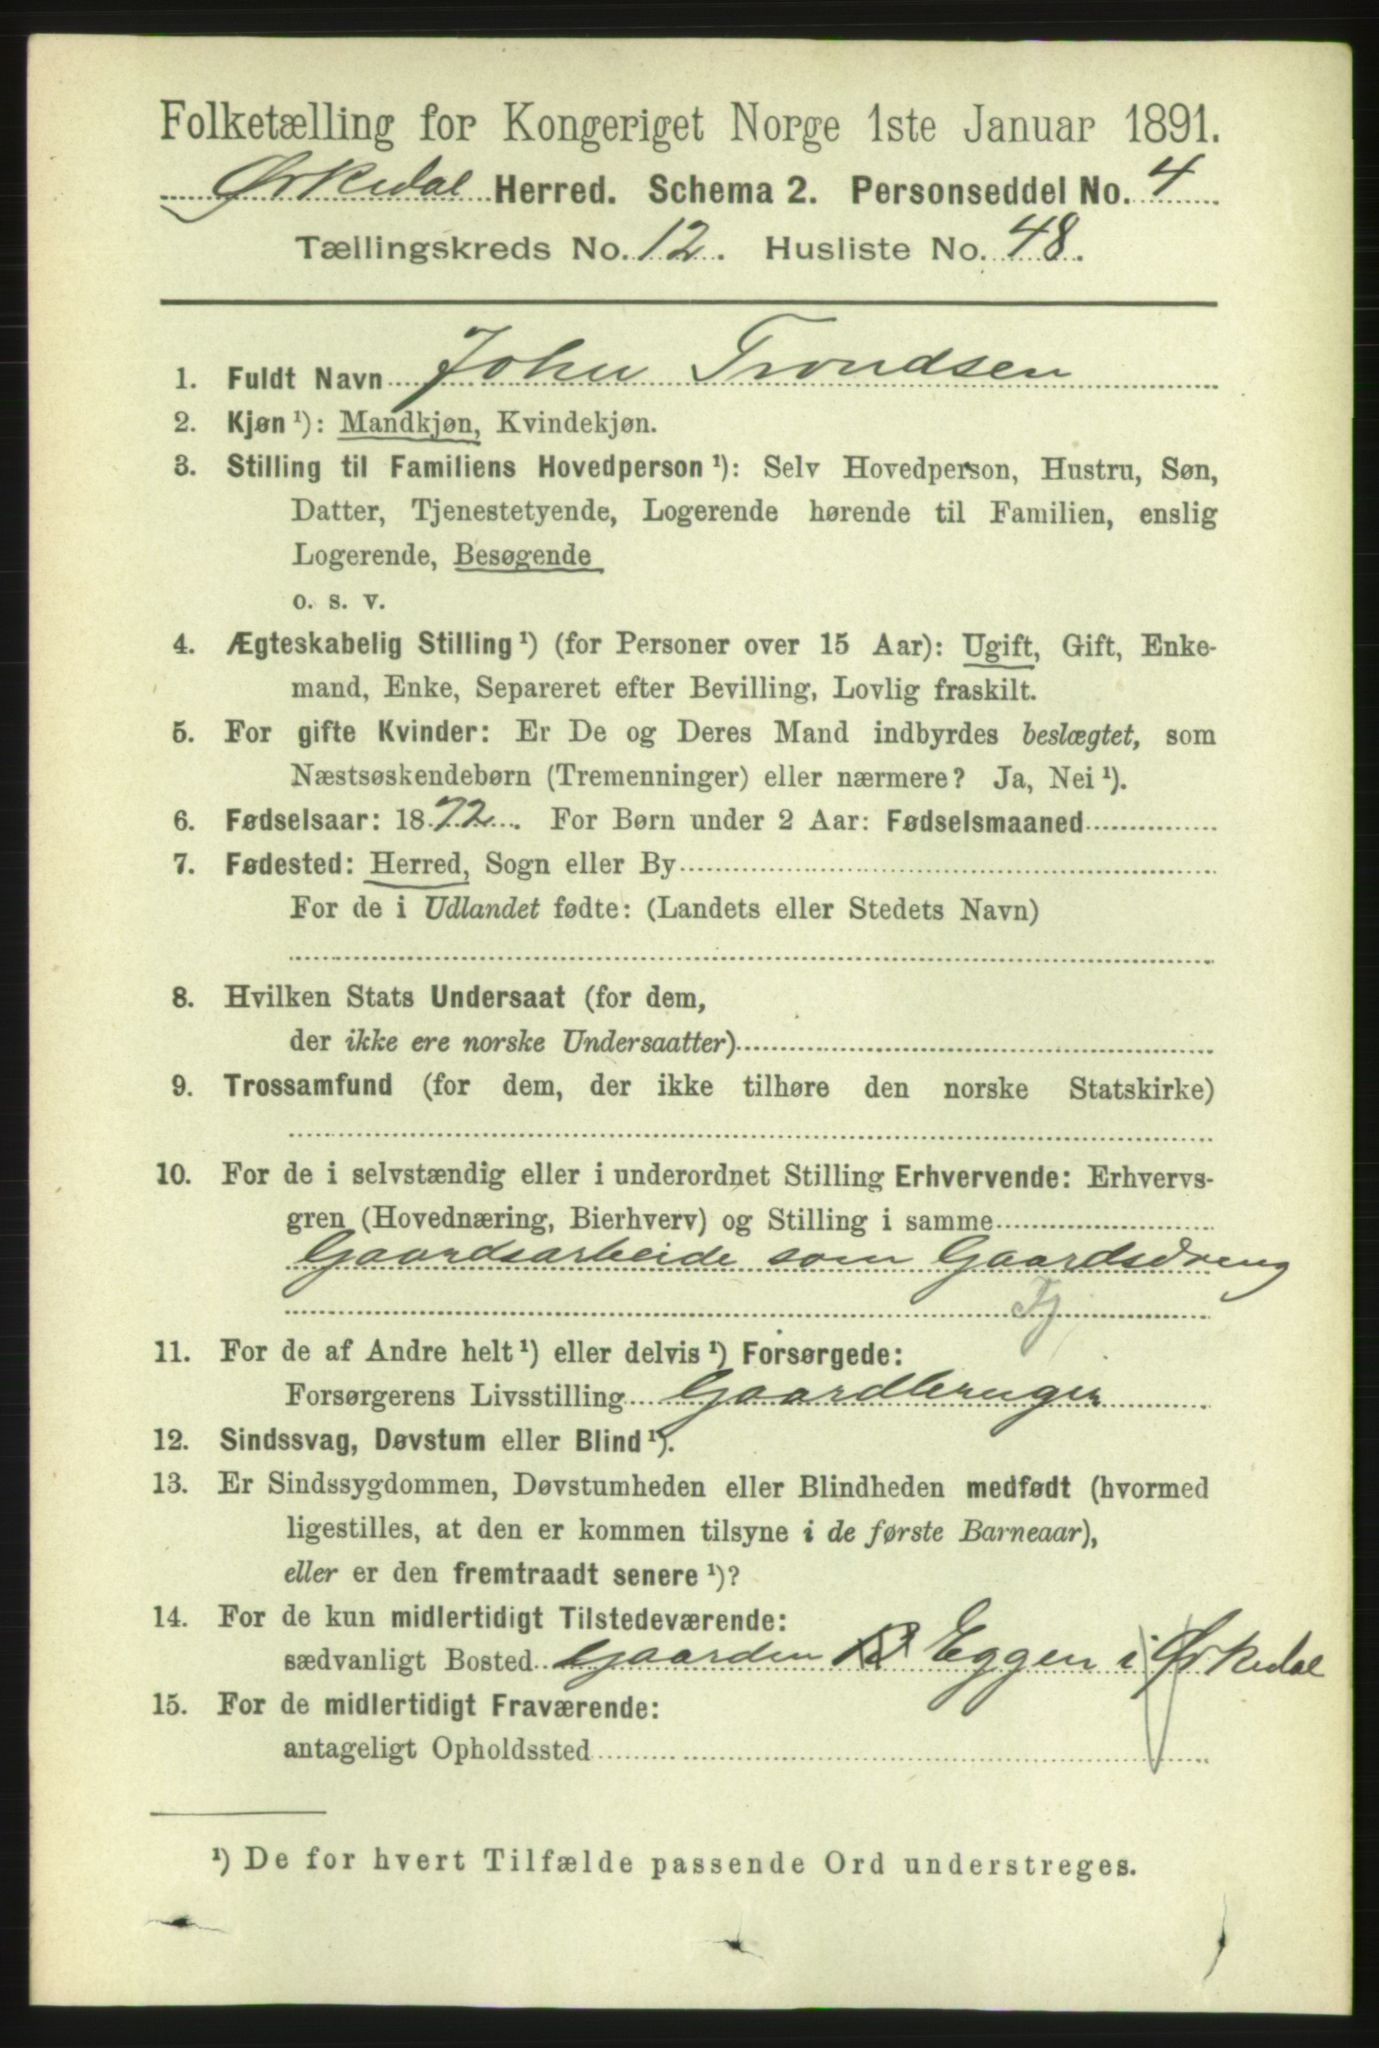 Folketælling for Kongeriget Norge 1ste Januar 1891.
Ørkedal Herred. Schema 2. Personseddel No. 4
Tællingskreds No. 12. Husliste No. 48.
1. Fuldt Navn John Trondsen
2. Kjøn ¹): Mandkjøn, Kvindekjøn.
3. Stilling til Familiens Hovedperson ¹): Selv Hovedperson, Hustru, Søn,
Datter, Tjenestetyende, Logerende hørende til Familien, enslig
Logerende, Besøgende
o. s. v.
4. Ægteskabelig Stilling ¹) (for Personer over 15 Aar): Ugift, Gift, Enke-
mand, Enke, Separeret efter Bevilling, Lovlig fraskilt.
5. For gifte Kvinder: Er De og Deres Mand indbyrdes beslægtet, som
Næstsøskendebørn (Tremenninger) eller nærmere? Ja, Nei ¹).
6. Fødselsaar: 1872. For Børn under 2 Aar: Fødselsmaaned
7. Fødested: Herred, Sogn eller By
For de i Udlandet fødte: (Landets eller Stedets Navn)
8. Hvilken Stats Undersaat (for dem,
der ikke ere norske Undersaatter)
9. Trossamfund (for dem, der ikke tilhøre den norske Statskirke)
10. For de i selvstændig eller i underordnet Stilling Erhvervende: Erhvervs-
gren (Hovednæring, Bierhverv) og Stilling i samme
Gaardsarbeide som Gaardsdreng
Tj
11. For de af Andre helt ¹) eller delvis ¹) Forsørgede:
Forsørgerens Livsstilling Gaardbruger
12. Sindssvag, Døvstum eller Blind ¹).
13. Er Sindssygdommen, Døvstumheden eller Blindheden medfødt (hvormed
ligestilles, at den er kommen tilsyne i de første Barneaar),
eller er den fremtraadt senere ¹)?
14. For de kun midlertidigt Tilstedeværende:
sædvanligt Bosted Gaarden Eggen i Ørkedal
15. For de midlertidigt Fraværende:
antageligt Opholdssted
¹) De for hvert Tilfælde passende Ord understreges.